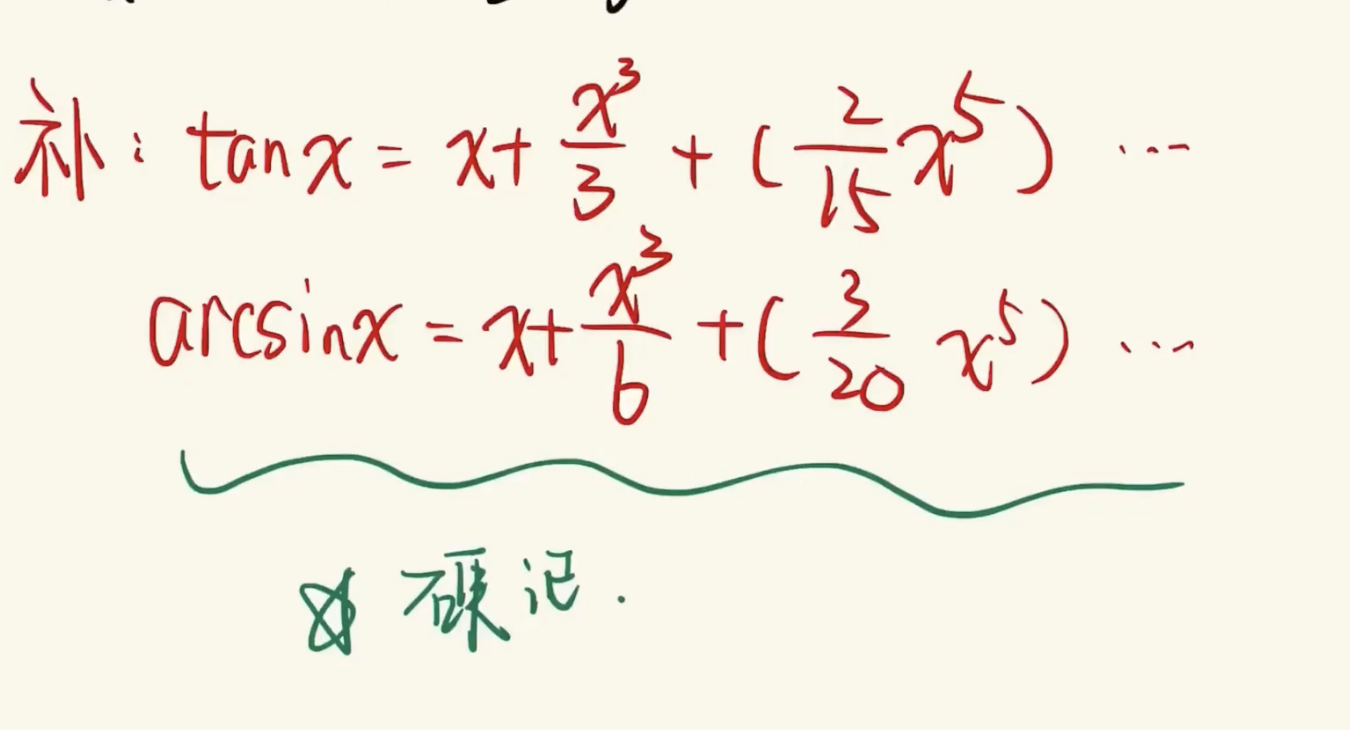 补: tan x = x + x³/3 + (2/15 x⁵) ...
arcsin x = x + x³/6 + (3/20 x⁵) ...
☆ 硬记.